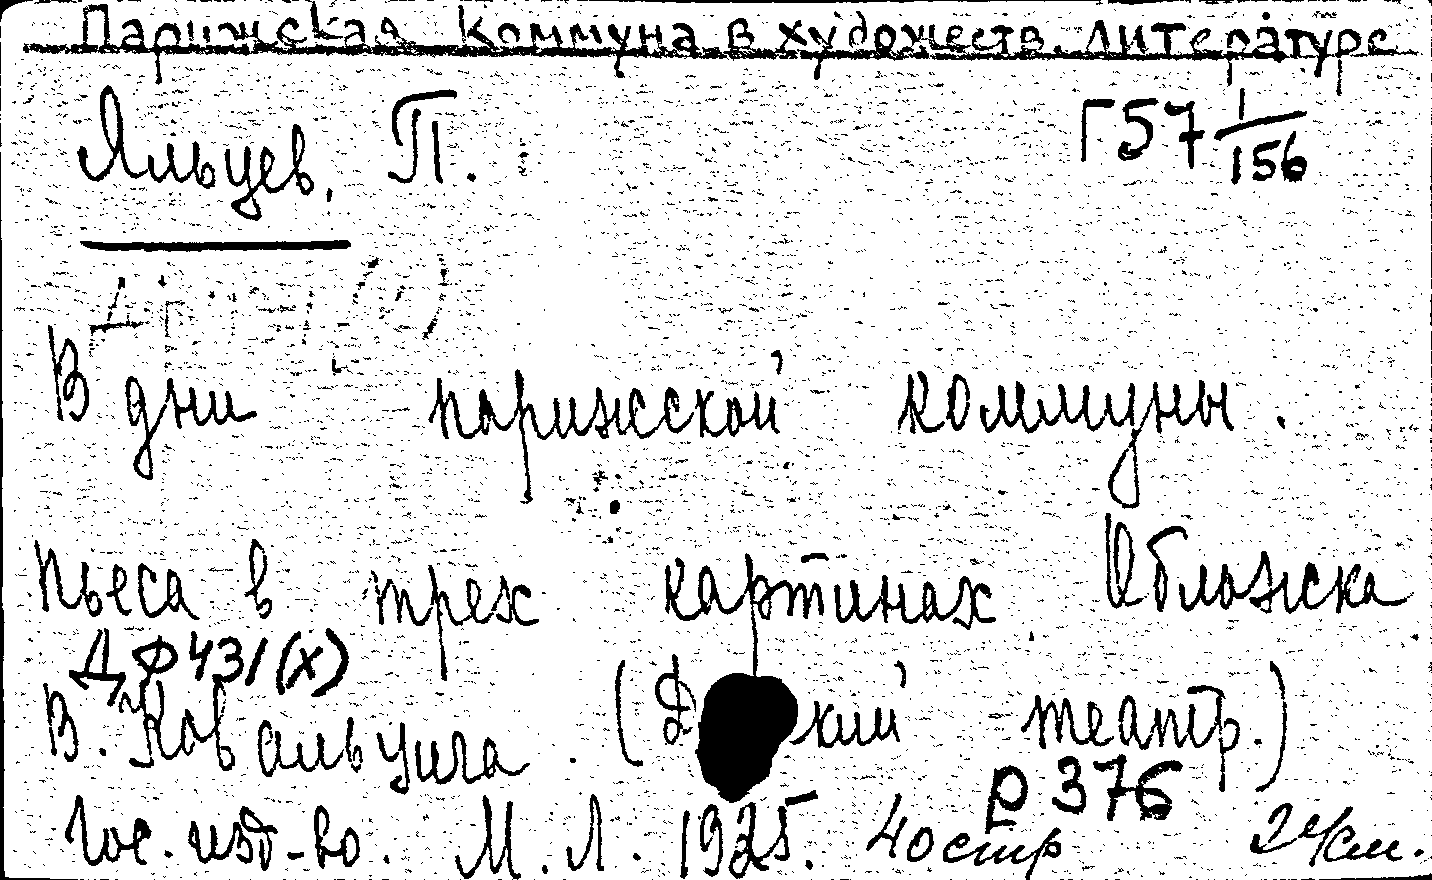 Парижская Коммуна в художеств. литературе
Яльцев, П.
Г57 1/156
В дни парижской коммуны.
Пьеса в трех картинах. Обложка
ДФ431(х)
В. Ковальцига. (Д кий театр.)
Р376
Гос. изд-во. М. Л. 1925. 40 стр 24см.